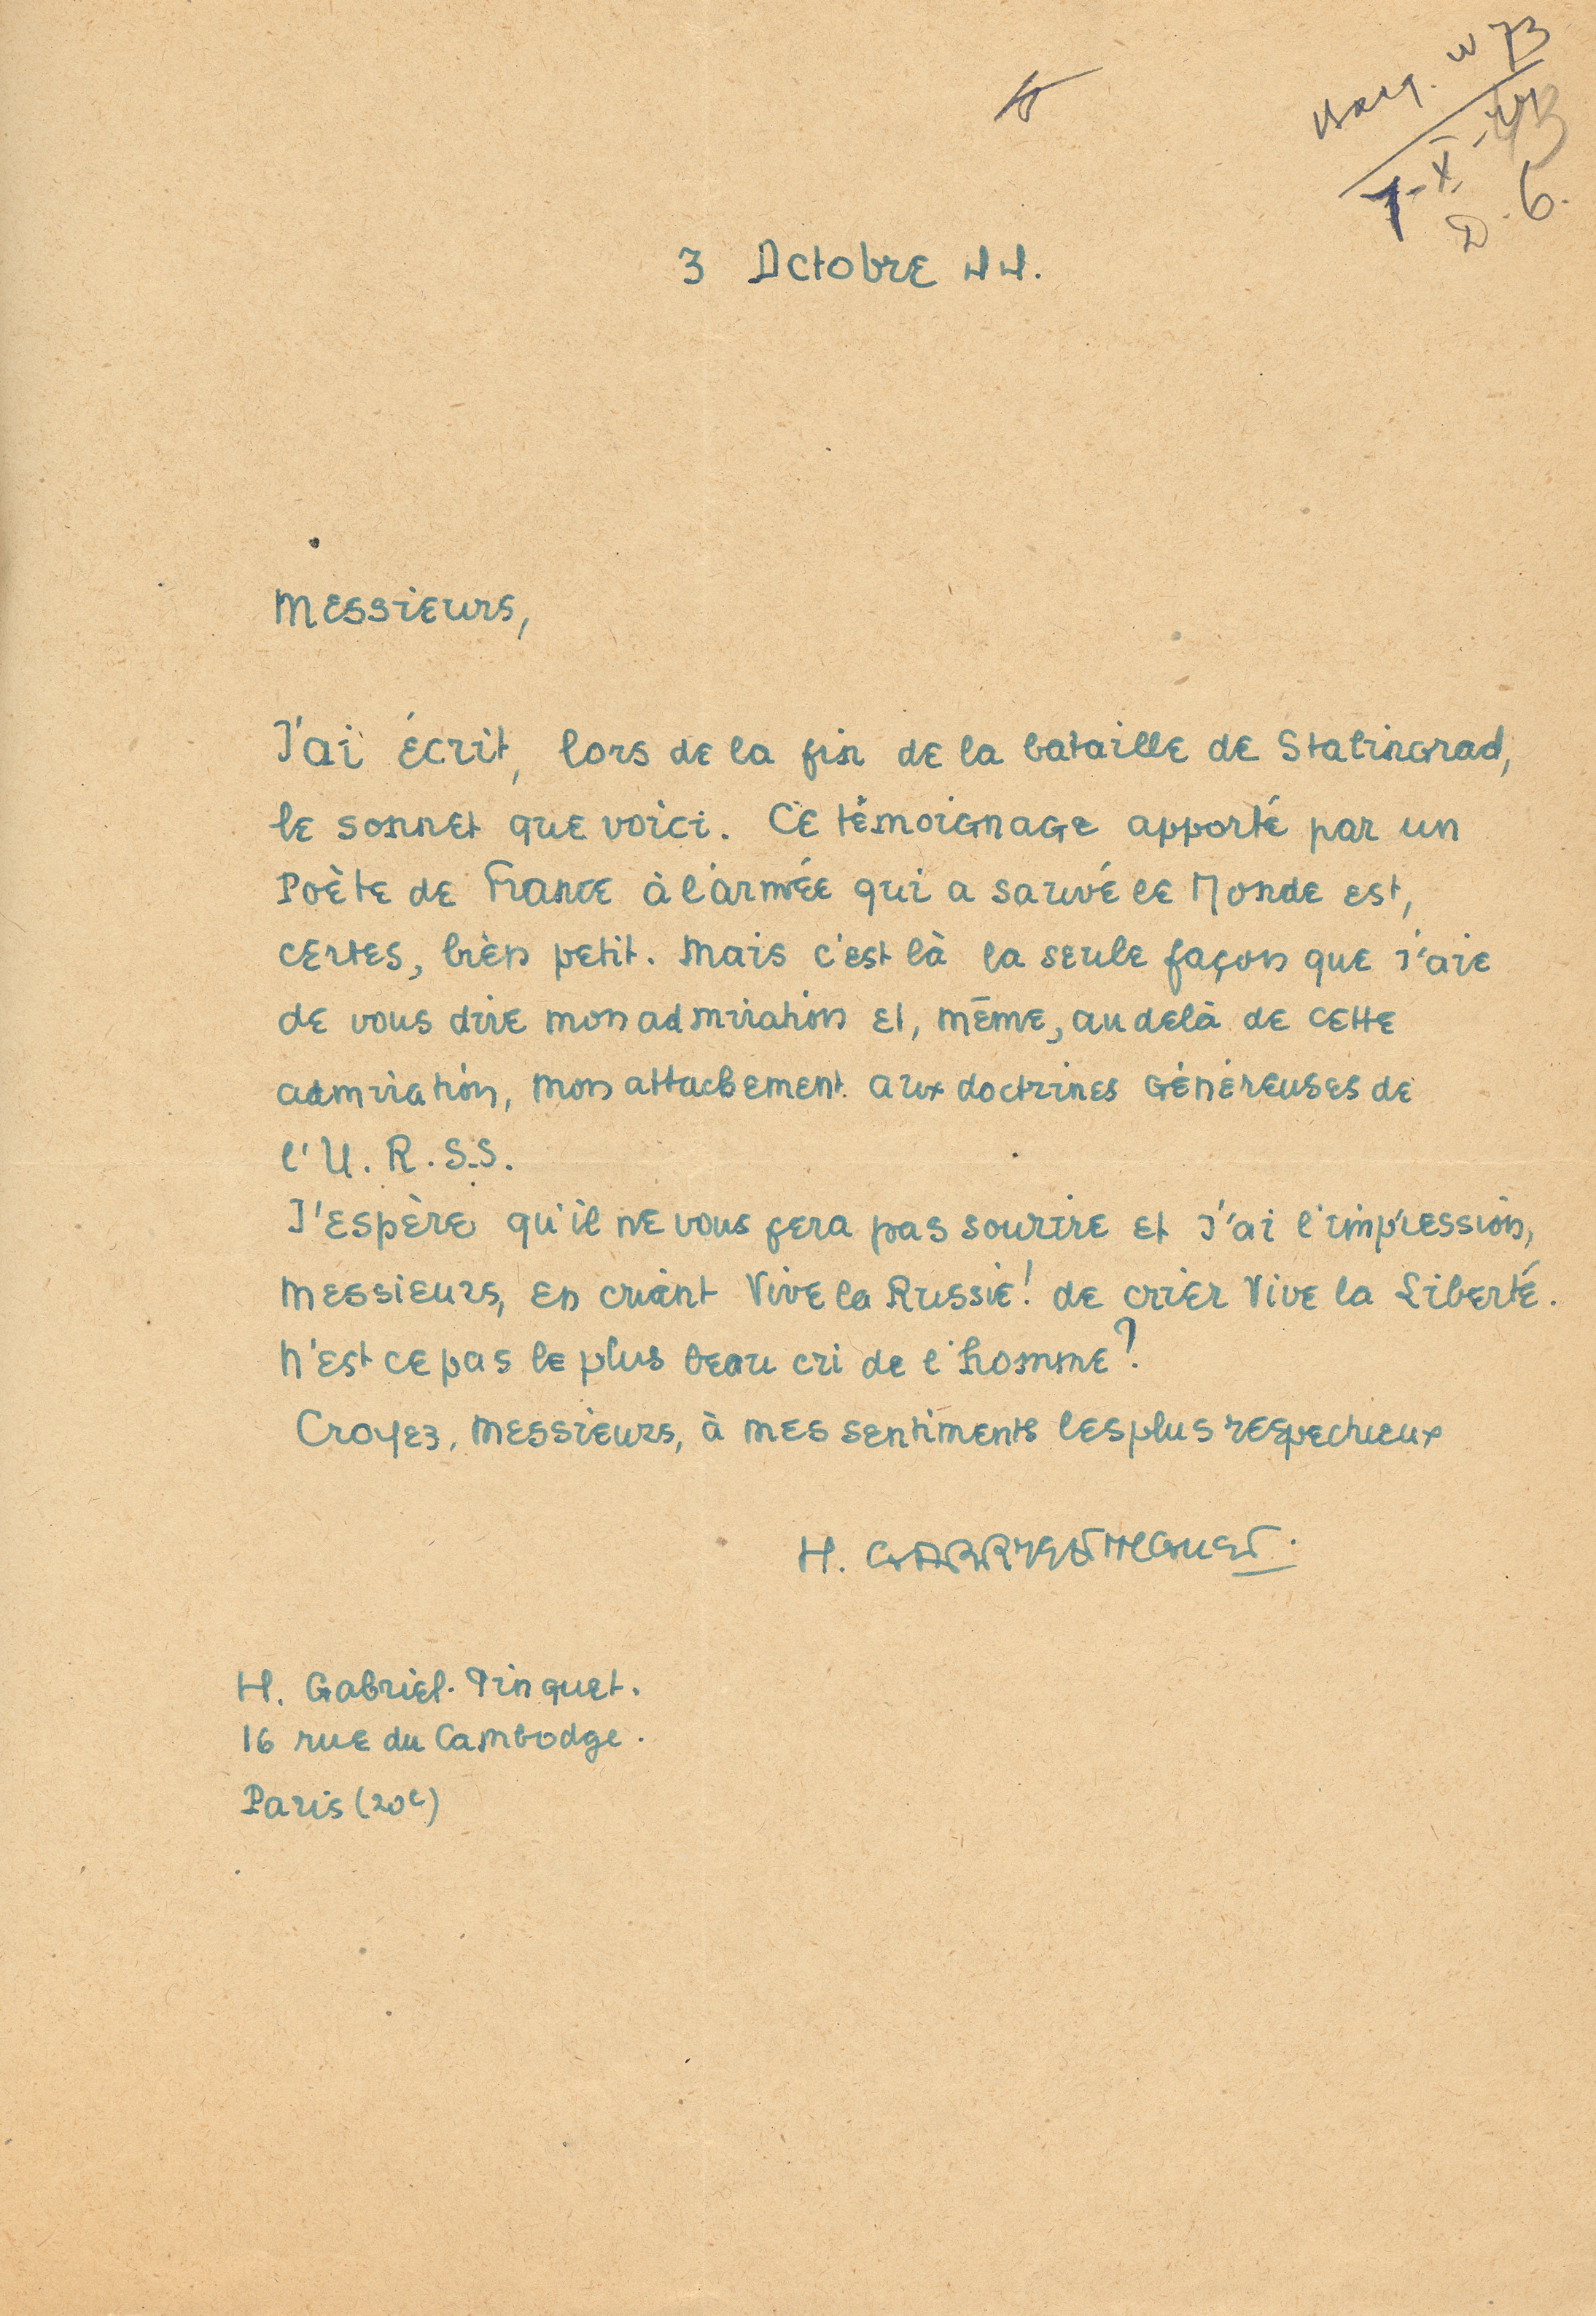 73
D. 6.
3 Octobre 44.
Messieurs,
J'ai écrit, lors de la fin de la bataille de Stalingrad,
le sonnet que voici. Ce témoignage apporté par un
Poète de France à l'armée qui a sauvé le Monde est,
certes, bien petit. Mais c'est là la seule façon que j'aie
de vous dire mon admiration et, même, au delà de cette
admiration, mon attachement aux doctrines généreuses de
l'U.R.S.S.
J'espère qu'il ne vous fera pas sourire et j'ai l'impression,
Messieurs, en criant Vive la Russie! de crier Vive la Liberté.
N'est ce pas le plus beau cri de l'homme?
Croyez, Messieurs, à mes sentiments les plus respectueux
H.
H. Gabriel.
16 rue du Cambodge.
Paris (20e)